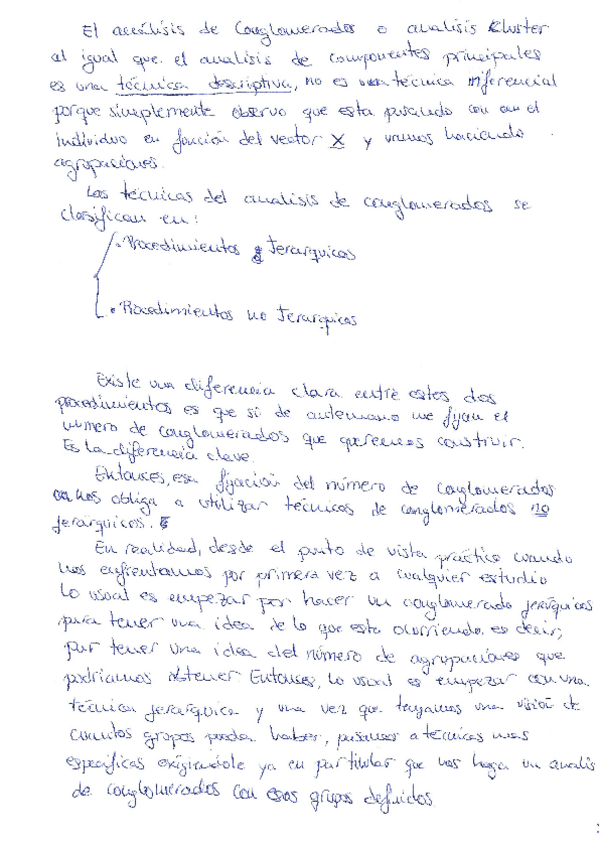 El analisis de Conglomerados o analisis Cluster
al igual que el analisis de componentes principales
es una técnica descriptiva, no es una técnica inferencial
porque simplemente observo que esta pasando con el
individuo en función del vector X y vamos haciendo
agrupaciones.
Las técnicas del analisis de conglomerados se
clasifican en:
• Procedimientos Jerarquicos
• Procedimientos no Jerarquicos
Existe una diferencia clara entre estos dos
procedimientos es que si de antemano me fijan el
numero de conglomerados que queremos construir.
Es la diferencia clave.
Entonces, esa fijación del número de conglomerados
nos obliga a utilizar técnicas de conglomerados no
jerárquicos.
En realidad, desde el punto de vista práctico cuando
nos enfrentamos por primera vez a cualquier estudio
lo usual es empezar por hacer un conglomerado jerárquicos
para tener una idea de lo que esta ocurriendo es decir,
por tener una idea del número de agrupaciones que
podriamos obtener Entonces, lo usual es empezar con una
técnica jerarquica y una vez que tengamos una visión de
cuantos grupos pueda haber, pasamos a técnicas mas
especificas exigiendole ya en particular que nos haga un analisis
de conglomerados con esos grupos definidos